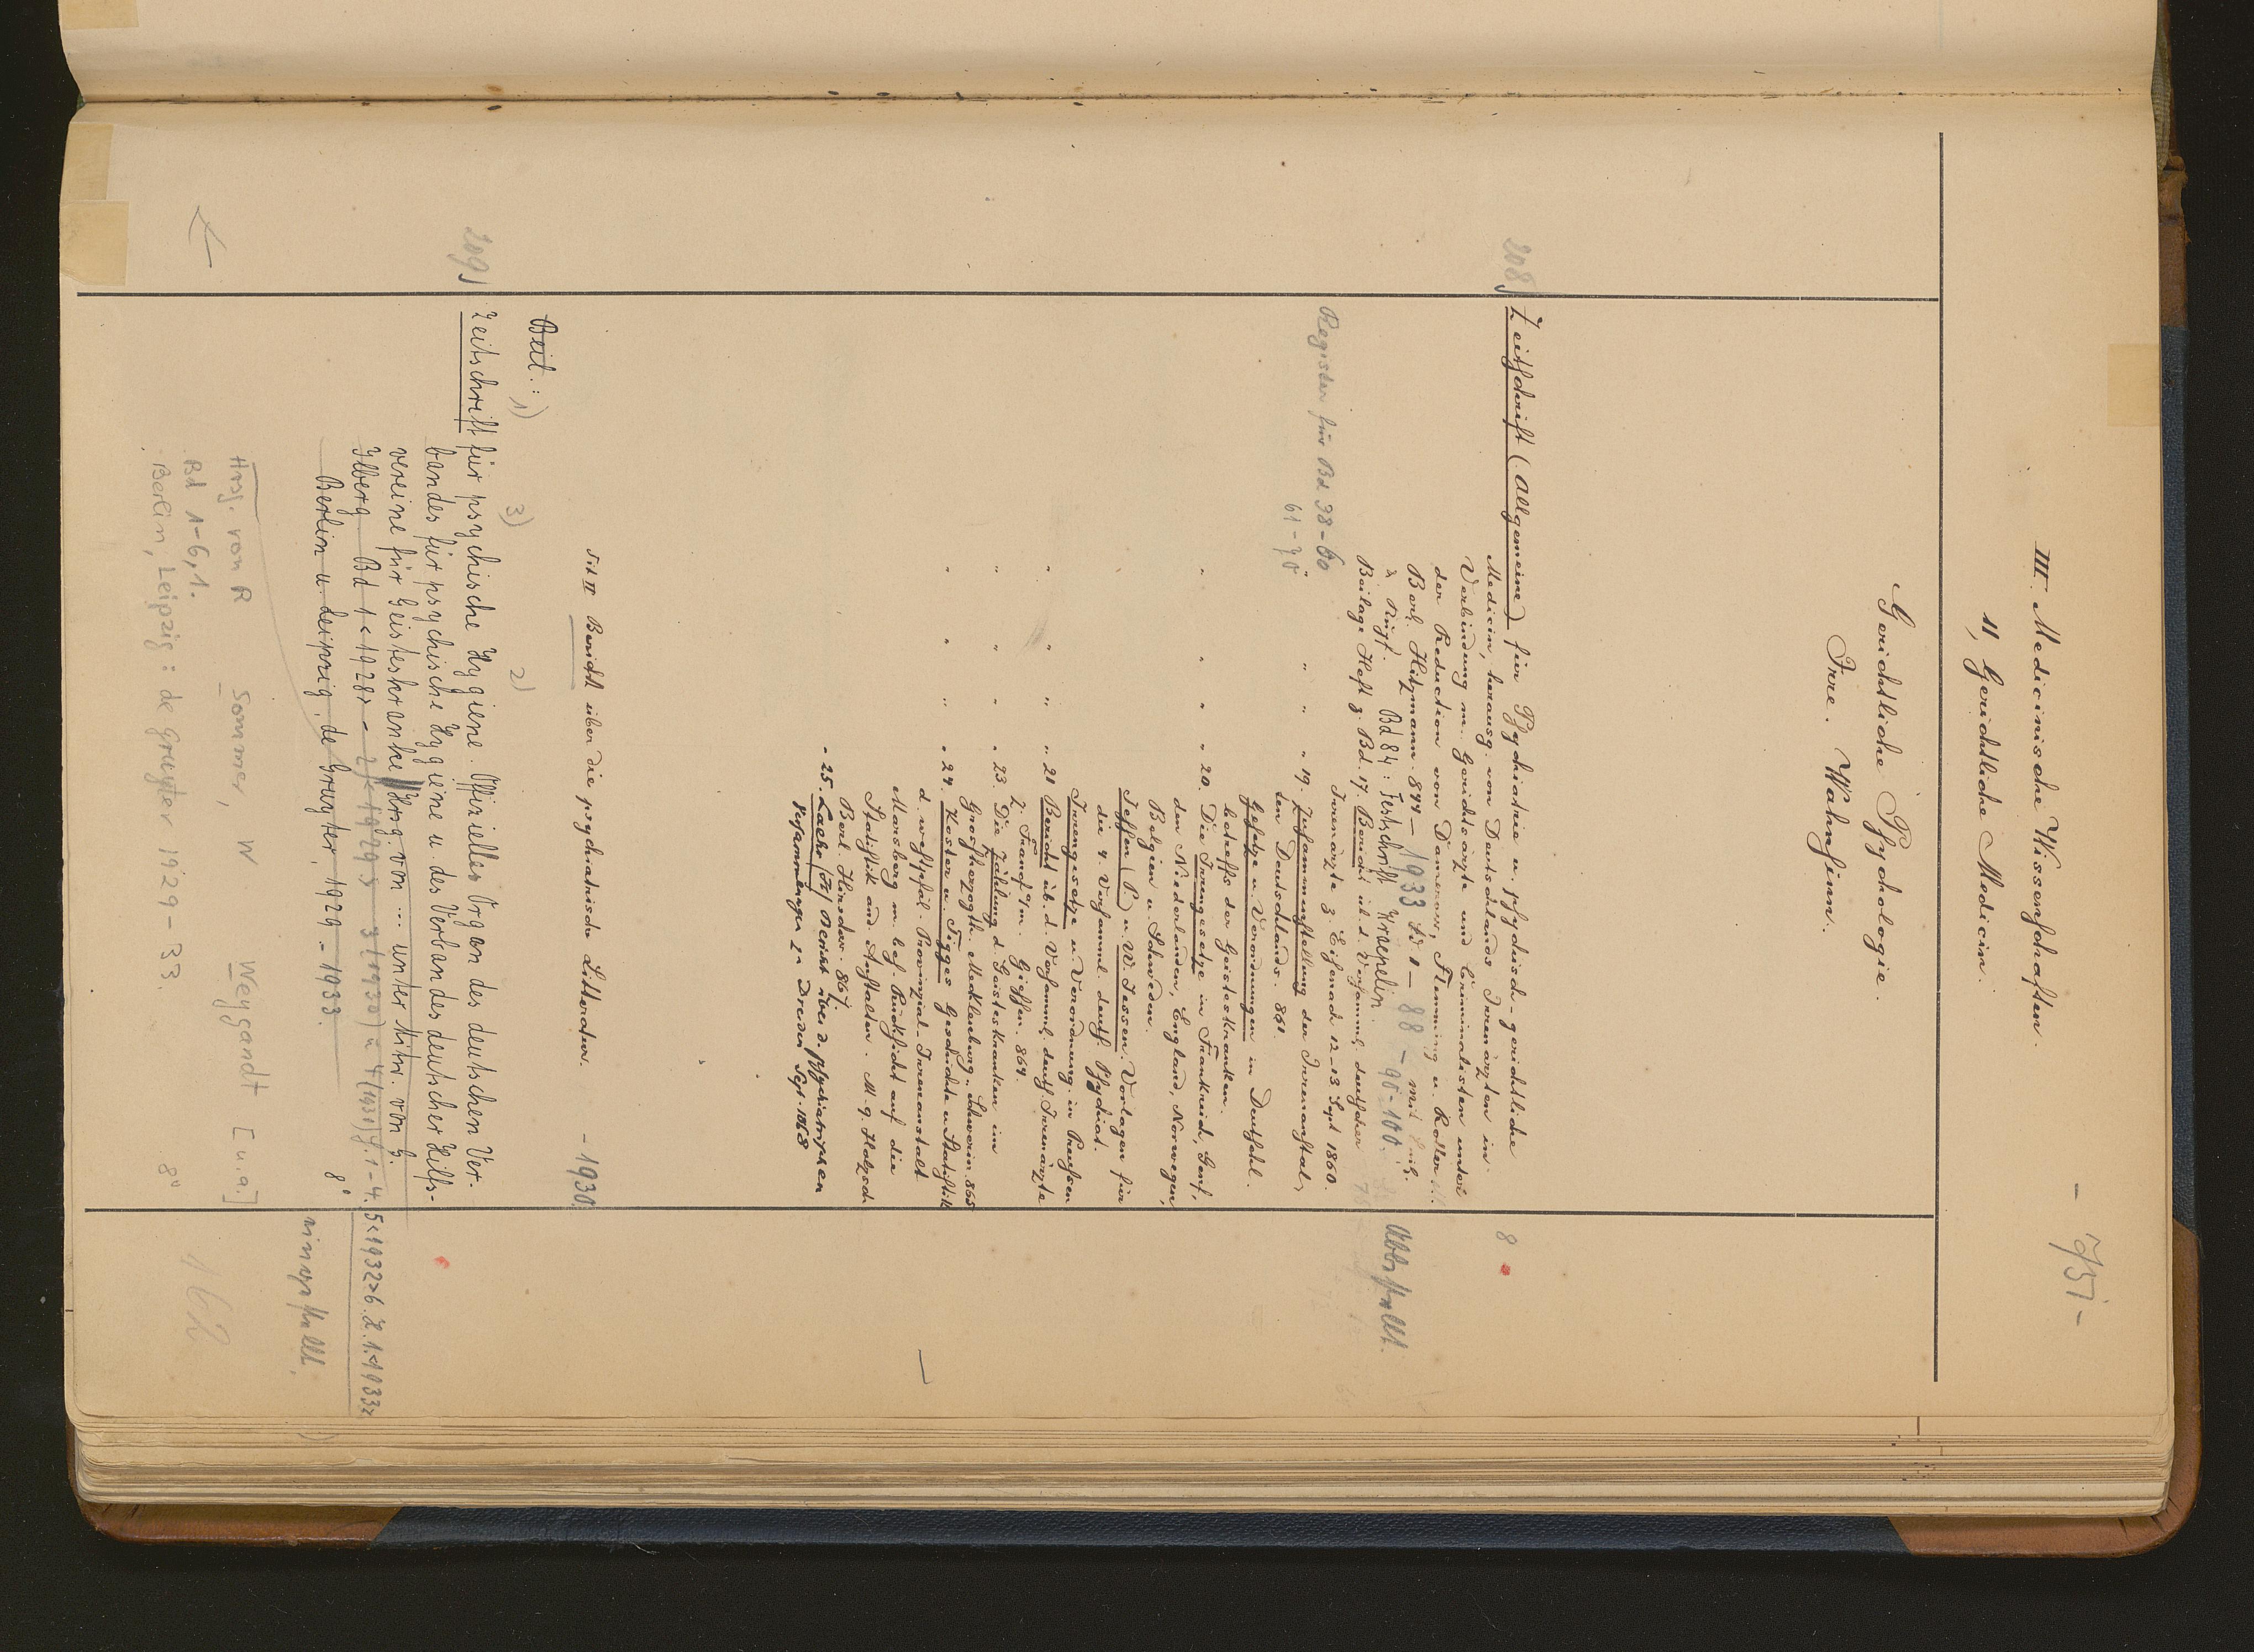 - 75 -
III. Medicinische Wissenschaften.
11, Gerichtliche Medicin.
Gerichtliche Psychologie.
Irre. Wahnsinn.
208) Zeitschrift (Allgemeine) für Psychiatrie u. psychisch-gerichtliche 8
Medicin, herausg. von Deutschlands Irrenärzten in
Verbindung m. Gerichtsärzte und Criminalisten unter
der Redaction von Damerow, Flemming u. Roller
Berl. Hitzmann. 844 - 1933 Bd 1 - 88 - 98-100.
Bd 84: Festschrift Kraepelin. Abbestellt.
Beilage Heft z. Bd. 17. Bericht üb. d. Versamml. deutscher
Irrenärzte z. Eisenach 12-13 Sept 1860.
Register für Bd 38-60
61-70
" " " " 19. Zusammenstellung der Irrenanstal,
ten Deutschlands. 861.
Gesetze u. Verordnungen in Deutschl.
betreffs der Geisteskranken.
" " " " 20. Die Irrengesetze in Frankreich, Genf,
den Niederlanden, England, Norwegen,
Belgien u. Schweden.
Jessen (P.) u. W. Jessen. Vorlagen für
die 4 Versamml. deutsch. Psychiat.
Irrengesetze u. Verordnung. in Preussen
" " " " 21 Bericht üb. d. Versamml. deutsch. Irrenärzte
z. Frankf a/m. Giessen. 864.
" " " " 23. Die Zählung d. Geisteskranken im
Grossherzogth. Mecklenburg-Schwerin 865
" " " " 24. Koster u. Tigges Geschichte u. Statistik
d. westfäl. Provinzial-Irrenanstalt
Marsberg m. bes. Rücksicht auf die
Statistik and. Anstalten. M. 9 Holzsch
Berl. Hirschw. 867.
" 25. Laehr (H) Bericht über d. psychiatrischen
Versammlungen zu Dresden Sept. 1868
Bd II Bericht über die psychiatrische Litteratur. - 1930.
Beil.: 1) 3) 2)
209) Zeitschrift für psychische Hygiene. Offizielles Organ des deutschen Ver-
bandes für psychische Hygiene u. des Verbandes deutscher Hilfs-
vereine für Geisteskranke Hrsg. von ... unter Mitw. von G.
Ilberg Bd 1 <1928> - 2 <1929> 3 (1930) u 4 (1931) H. 1-4. 5<1932> 6. H. 1.<1933>
Berlin u. Leipzig, de Gruyter, 1929-1933. 8° eingestellt.
Hrsg. von R Sommer, W Weygandt [u.a.]
Bd 1-6,1.
Berlin, Leipzig: de Gruyter 1929-33. 8°
162